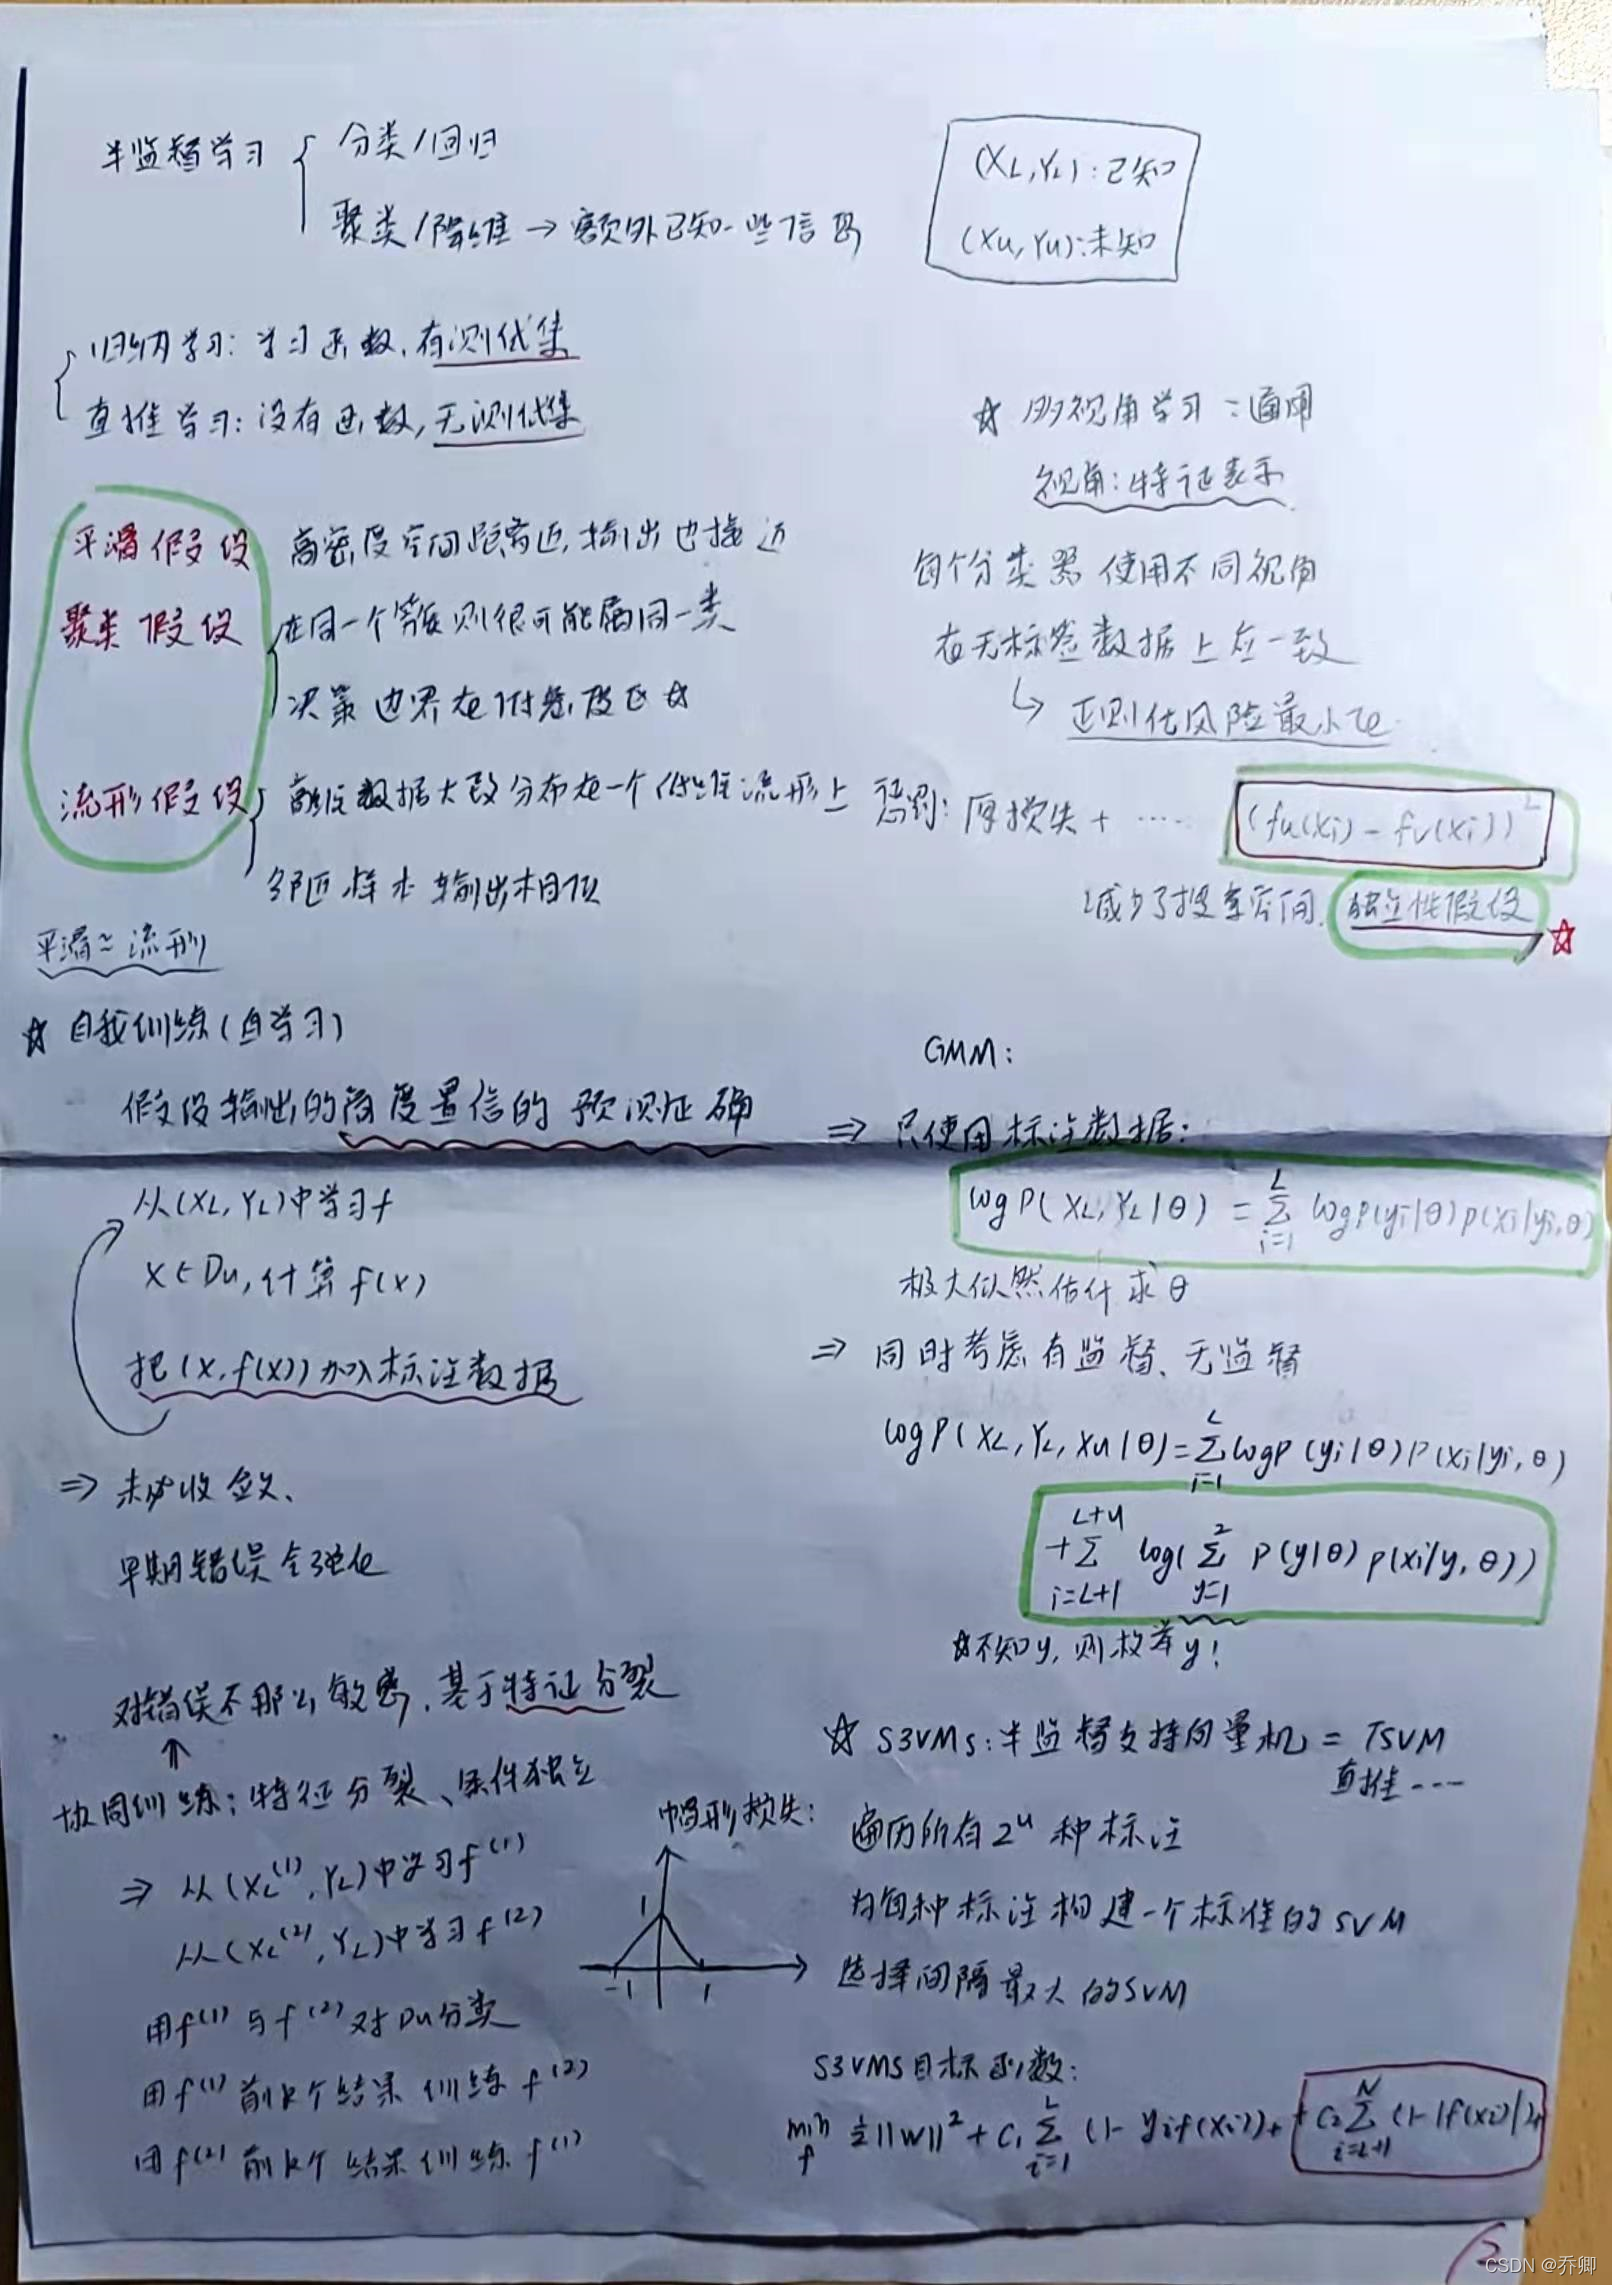 半监督学习
分类/回归
聚类/降维→额外已知一些信息
(XL,YL):已知
(Xu,Yu):未知
归纳学习:学习函数,有测试集
直推学习:没有函数,无测试集
平滑假设 高密度空间距离近,输出也接近
聚类假设 在同一个簇则很可能属同一类
决策边界在低密度区☆
流形假设 高维数据大致分布在一个低维流形上
邻近样本输出相似
平滑≈流形
☆自我训练(自学习)
假设输出的高度置信的预测正确
从(XL,YL)中学习f
x∈Du,计算f(x)
把(x,f(x))加入标注数据
⇒未必收敛、
早期错误会强化
对错误不那么敏感,基于特征分裂
⇑
协同训练:特征分裂、条件独立
⇒从(XL⁽¹⁾,YL)中学习f⁽¹⁾
从(XL⁽²⁾,YL)中学习f⁽²⁾
用f⁽¹⁾与f⁽²⁾对Du分类
用f⁽¹⁾前k个结果训练f⁽²⁾
用f⁽²⁾前k个结果训练f⁽¹⁾
☆多视角学习:通用
视角:特征表示
每个分类器使用不同视角
在无标签数据上应一致
↳正则化风险最小化
惩罚:原损失+…… (fu(xi)-fv(xi))²
减少了搜索空间. 独立性假设☆
GMM:
⇒只使用标注数据:
logP(XL,YL|θ)=∑_{i=1}^{L} logP(yi|θ)p(xi|yi,θ)
极大似然估计求θ
⇒同时考虑有监督、无监督
logP(XL,YL,Xu|θ)=∑_{i=1}^{L} logP(yi|θ)P(xi|yi,θ)
+∑_{i=L+1}^{L+u} log(∑_{y=1}^{2} P(y|θ)p(xi|y,θ))
☆不知y,则枚举y!
☆S3VMs:半监督支持向量机=TSVM
直推---
帽形损失:
1
-1 1
遍历所有2ᵘ种标注
为每种标注构建一个标准的SVM
选择间隔最大的SVM
S3VMS目标函数:
min_f ½||w||²+C₁∑_{i=1}^{L}(1-yif(xi))₊+C₂∑_{i=L+1}^{N}(1-|f(xi)|)₊
2
CSDN @乔卿